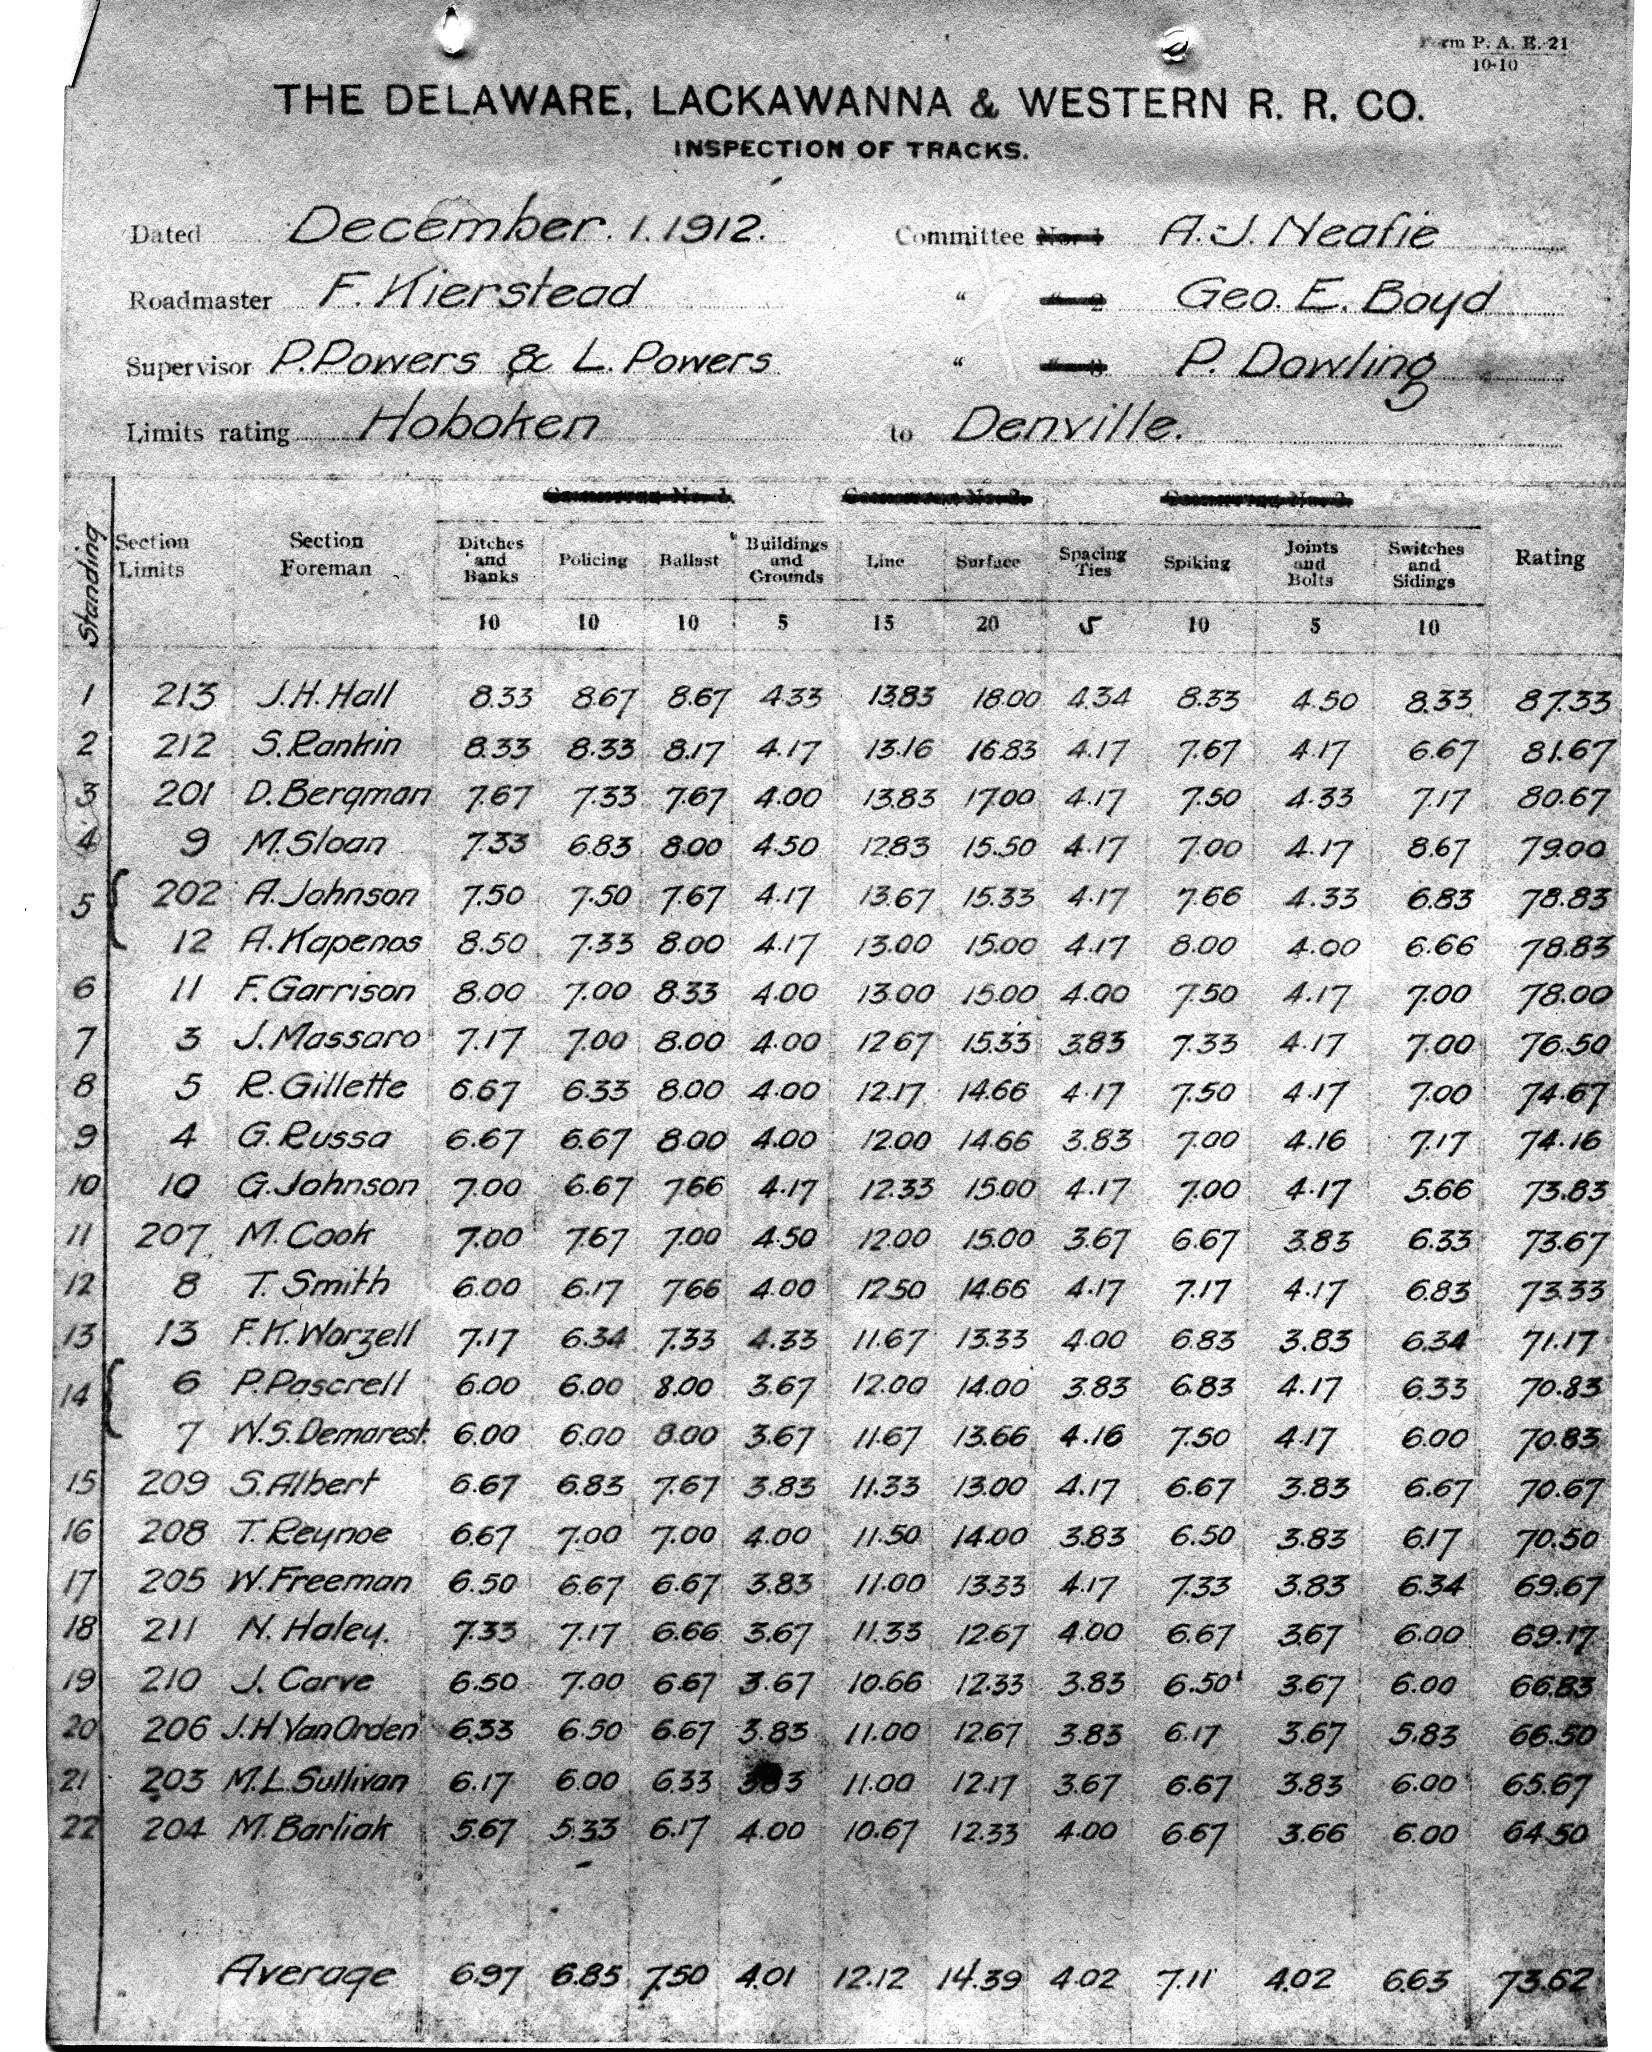 Form P. A. E. 21
10-10
THE DELAWARE, LACKAWANNA & WESTERN R. R. CO.
INSPECTION OF TRACKS.
Dated December. 1. 1912. Committee No. 1 A. J. Neafie
Roadmaster F. Kierstead " " 2 Geo. E. Boyd
Supervisor P. Powers & L. Powers " " 3 P. Dowling
Limits rating Hoboken to Denville.
Committee No. 1. Committee No. 2. Committee No. 3.
Standing Section Limits Section Foreman Ditches and Banks Policing Ballast Buildings and Grounds Line Surface Spacing Ties Spiking Joints and Bolts Switches and Sidings Rating
10 10 10 5 15 20 5 10 5 10
1 213 J.H. Hall 8.33 8.67 8.67 4.33 13.83 18.00 4.34 8.33 4.50 8.33 87.33
2 212 S. Rankin 8.33 8.33 8.17 4.17 13.16 16.83 4.17 7.67 4.17 6.67 81.67
3 201 D. Bergman 7.67 7.33 7.67 4.00 13.83 17.00 4.17 7.50 4.33 7.17 80.67
4 9 M. Sloan 7.33 6.83 8.00 4.50 12.83 15.50 4.17 7.00 4.17 8.67 79.00
5 { 202 A. Johnson 7.50 7.50 7.67 4.17 13.67 15.33 4.17 7.66 4.33 6.83 78.83
12 A. Kapenos 8.50 7.33 8.00 4.17 13.00 15.00 4.17 8.00 4.00 6.66 78.83
6 11 F. Garrison 8.00 7.00 8.33 4.00 13.00 15.00 4.00 7.50 4.17 7.00 78.00
7 3 J. Massaro 7.17 7.00 8.00 4.00 12.67 15.33 3.83 7.33 4.17 7.00 76.50
8 5 R. Gillette 6.67 6.33 8.00 4.00 12.17 14.66 4.17 7.50 4.17 7.00 74.67
9 4 G. Russa 6.67 6.67 8.00 4.00 12.00 14.66 3.83 7.00 4.16 7.17 74.16
10 10 G. Johnson 7.00 6.67 7.66 4.17 12.33 15.00 4.17 7.00 4.17 5.66 73.83
11 207 M. Cook 7.00 7.67 7.00 4.50 12.00 15.00 3.67 6.67 3.83 6.33 73.67
12 8 T. Smith 6.00 6.17 7.66 4.00 12.50 14.66 4.17 7.17 4.17 6.83 73.33
13 13 F.K. Worzell 7.17 6.34 7.33 4.33 11.67 13.33 4.00 6.83 3.83 6.34 71.17
14 { 6 P. Pascrell 6.00 6.00 8.00 3.67 12.00 14.00 3.83 6.83 4.17 6.33 70.83
7 W.S. Demarest. 6.00 6.00 8.00 3.67 11.67 13.66 4.16 7.50 4.17 6.00 70.83
15 209 S. Albert 6.67 6.83 7.67 3.83 11.33 13.00 4.17 6.67 3.83 6.67 70.67
16 208 T. Reynoe 6.67 7.00 7.00 4.00 11.50 14.00 3.83 6.50 3.83 6.17 70.50
17 205 W. Freeman 6.50 6.67 6.67 3.83 11.00 13.33 4.17 7.33 3.83 6.34 69.67
18 211 N. Haley. 7.33 7.17 6.66 3.67 11.33 12.67 4.00 6.67 3.67 6.00 69.17
19 210 J. Carve 6.50 7.00 6.67 3.67 10.66 12.33 3.83 6.50 3.67 6.00 66.83
20 206 J.H Van Orden 6.33 6.50 6.67 3.83 11.00 12.67 3.83 6.17 3.67 5.83 66.50
21 203 M.L. Sullivan 6.17 6.00 6.33 3.83 11.00 12.17 3.67 6.67 3.83 6.00 65.67
22 204 M. Barliak 5.67 5.33 6.17 4.00 10.67 12.33 4.00 6.67 3.66 6.00 64.50
Average 6.97 6.85 7.50 4.01 12.12 14.39 4.02 7.11 4.02 6.63 73.62